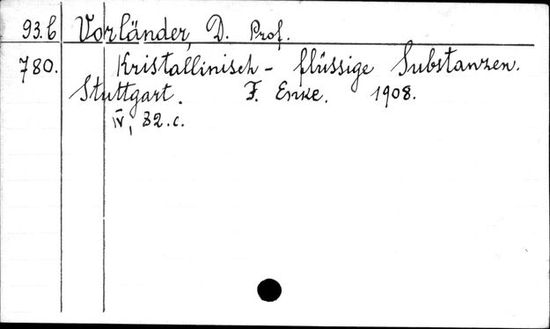 93.b Vorländer, D. Prof.
780. Kristallinisch - flüssige Substanzen.
Stuttgart. F. Enke. 1908.
IV, 82.c.